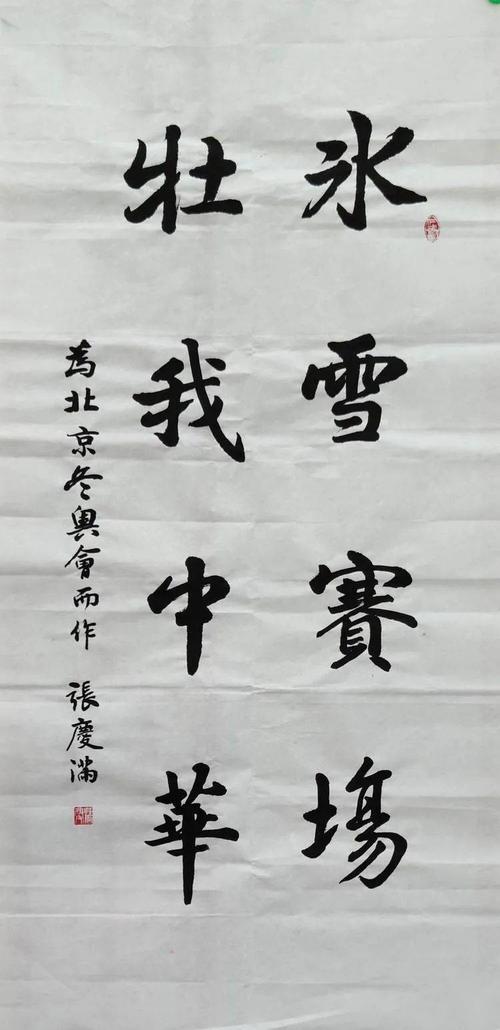 冰雪賽場
壯我中華
為北京冬奧會而作 張慶滿